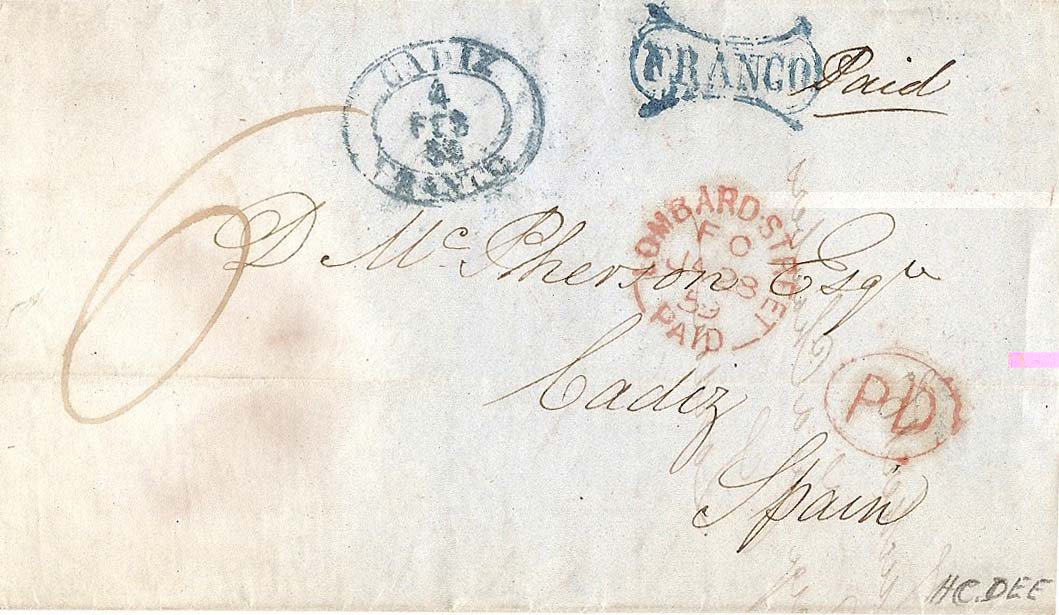 CADIZ
4
FEB
FRANCO
FRANCO
Paid
6
D McPherson Esqre
LOMBARD·STREET
F O
JA 28
59
PAID
Cadiz
PD
Spain
HC.DEE